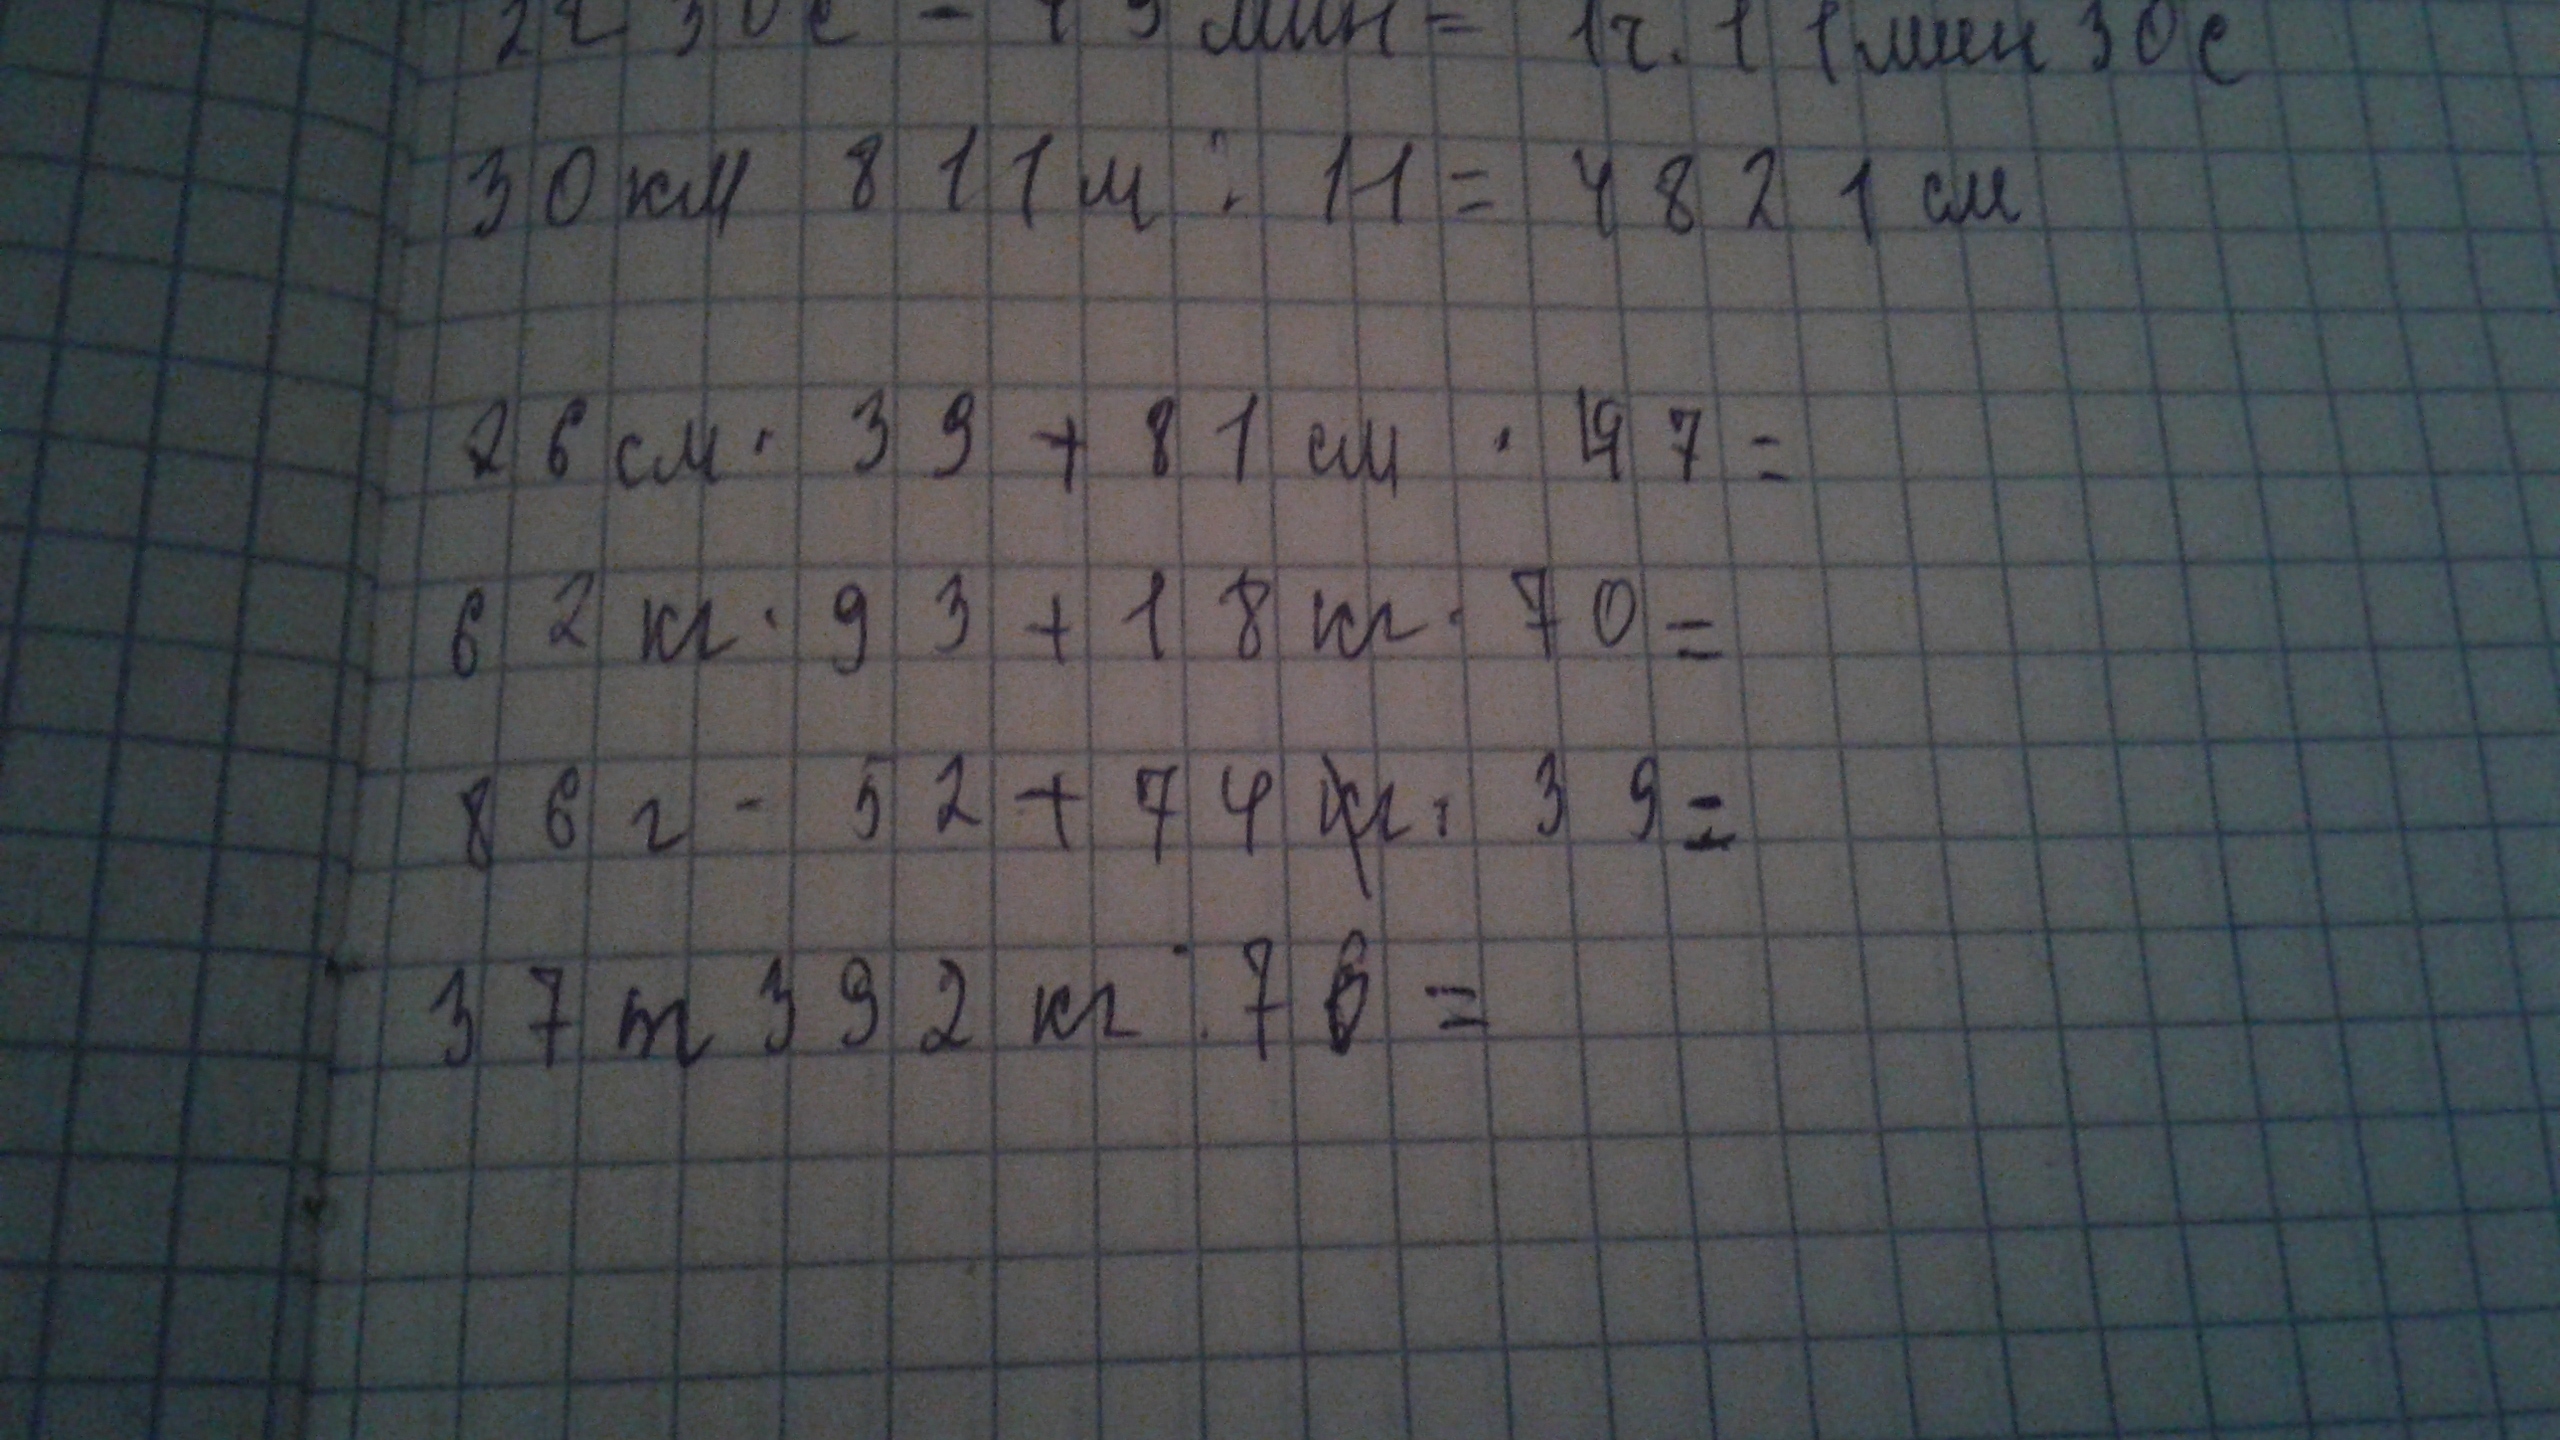 2ч 30с - 49 мин = 1ч. 11мин 30с
30км 811м : 11 = 4821см
26см · 39 + 81см · 97 =
62кг · 93 + 18кг · 70 =
86г · 52 + 74 г · 39 =
37т 392кг : 76 =